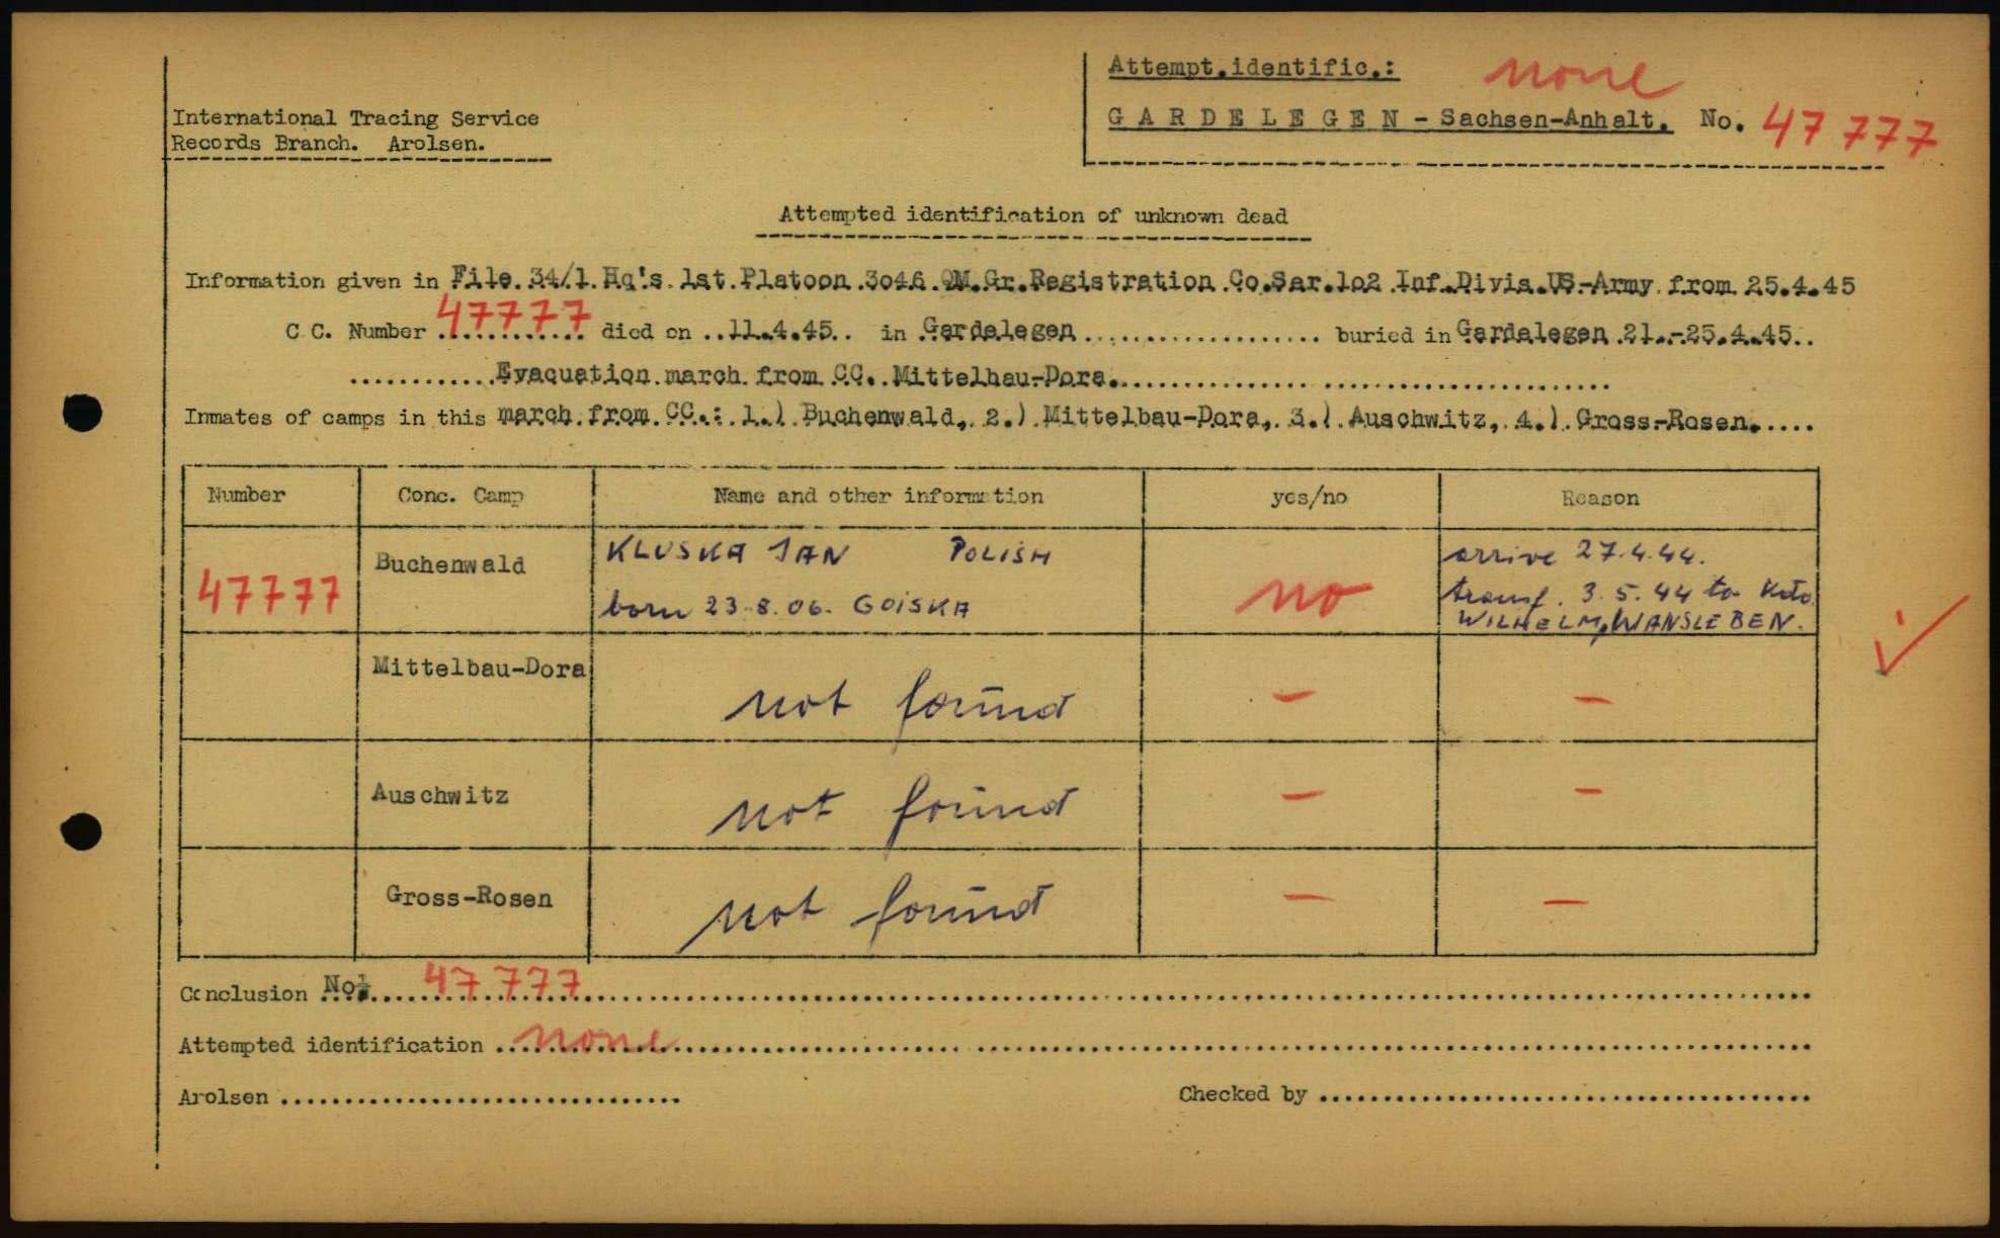 Attempt.identific.: none
International Tracing Service
Records Branch. Arolsen.
GARDELEGEN - Sachsen-Anhalt. No. 47 777
Attempted identification of unknown dead
Information given in File.34/1.Hq's.1st.Platoon.3o46.QM.Gr.Registration.Co.Sar.1o2.Inf.Divis.US.-Army.from 25.4.45
C.C. Number 47777 died on ..11.4.45.. in Gardelegen .................... buried in Gardelegen 21.-25.4.45..
............Evacuation march from CC. Mittelbau-Dora...............................
Inmates of camps in this march from CC.: 1.) Buchenwald, 2.) Mittelbau-Dora, 3.) Auschwitz, 4.) Gross-Rosen.....
Number Conc. Camp Name and other information yes/no Reason
47777 Buchenwald KLUSKA JAN POLISH no arrive 27.4.44.
born 23.8.06. GOISKA transf. 3.5.44 to Kdo
WILHELM, WANSLEBEN.
Mittelbau-Dora not found - -
Auschwitz not found - -
Gross-Rosen not found - -
Conclusion No. 47 777
Attempted identification none
Arolsen .................................
Checked by .......................................